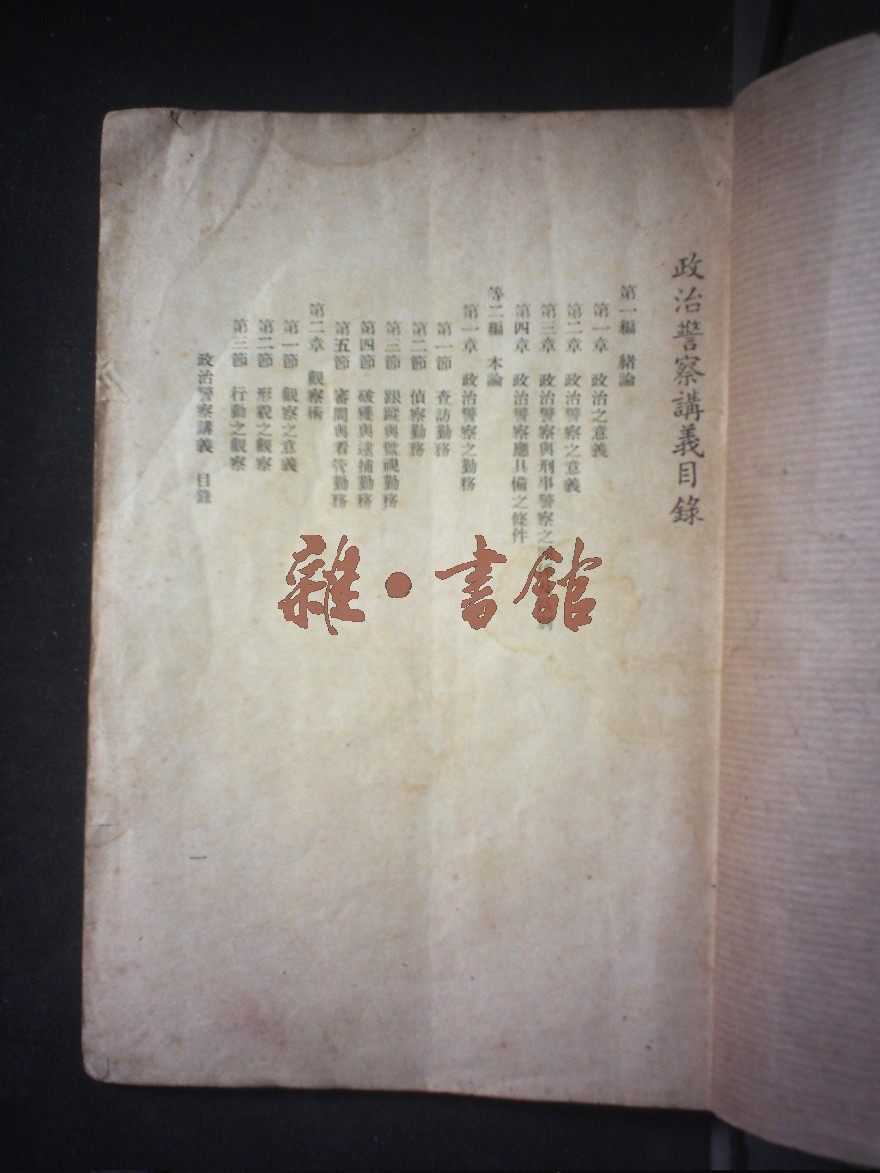 政治警察講義目錄
第一編 緒論
第一章 政治之意義
第二章 政治警察之意義
第三章 政治警察與刑事警察之
第四章 政治警察應具備之條件
等二編 本論
第一章 政治警察之勤務
第一節 查訪勤務
第二節 偵察勤務
第三節 跟蹤與監視勤務
第四節 破獲與逮捕勤務
第五節 審問與看管勤務
第二章 觀察術
第一節 觀察之意義
第二節 形貌之觀察
第三節 行動之觀察
政治警察講義 目錄
一
雜·書館